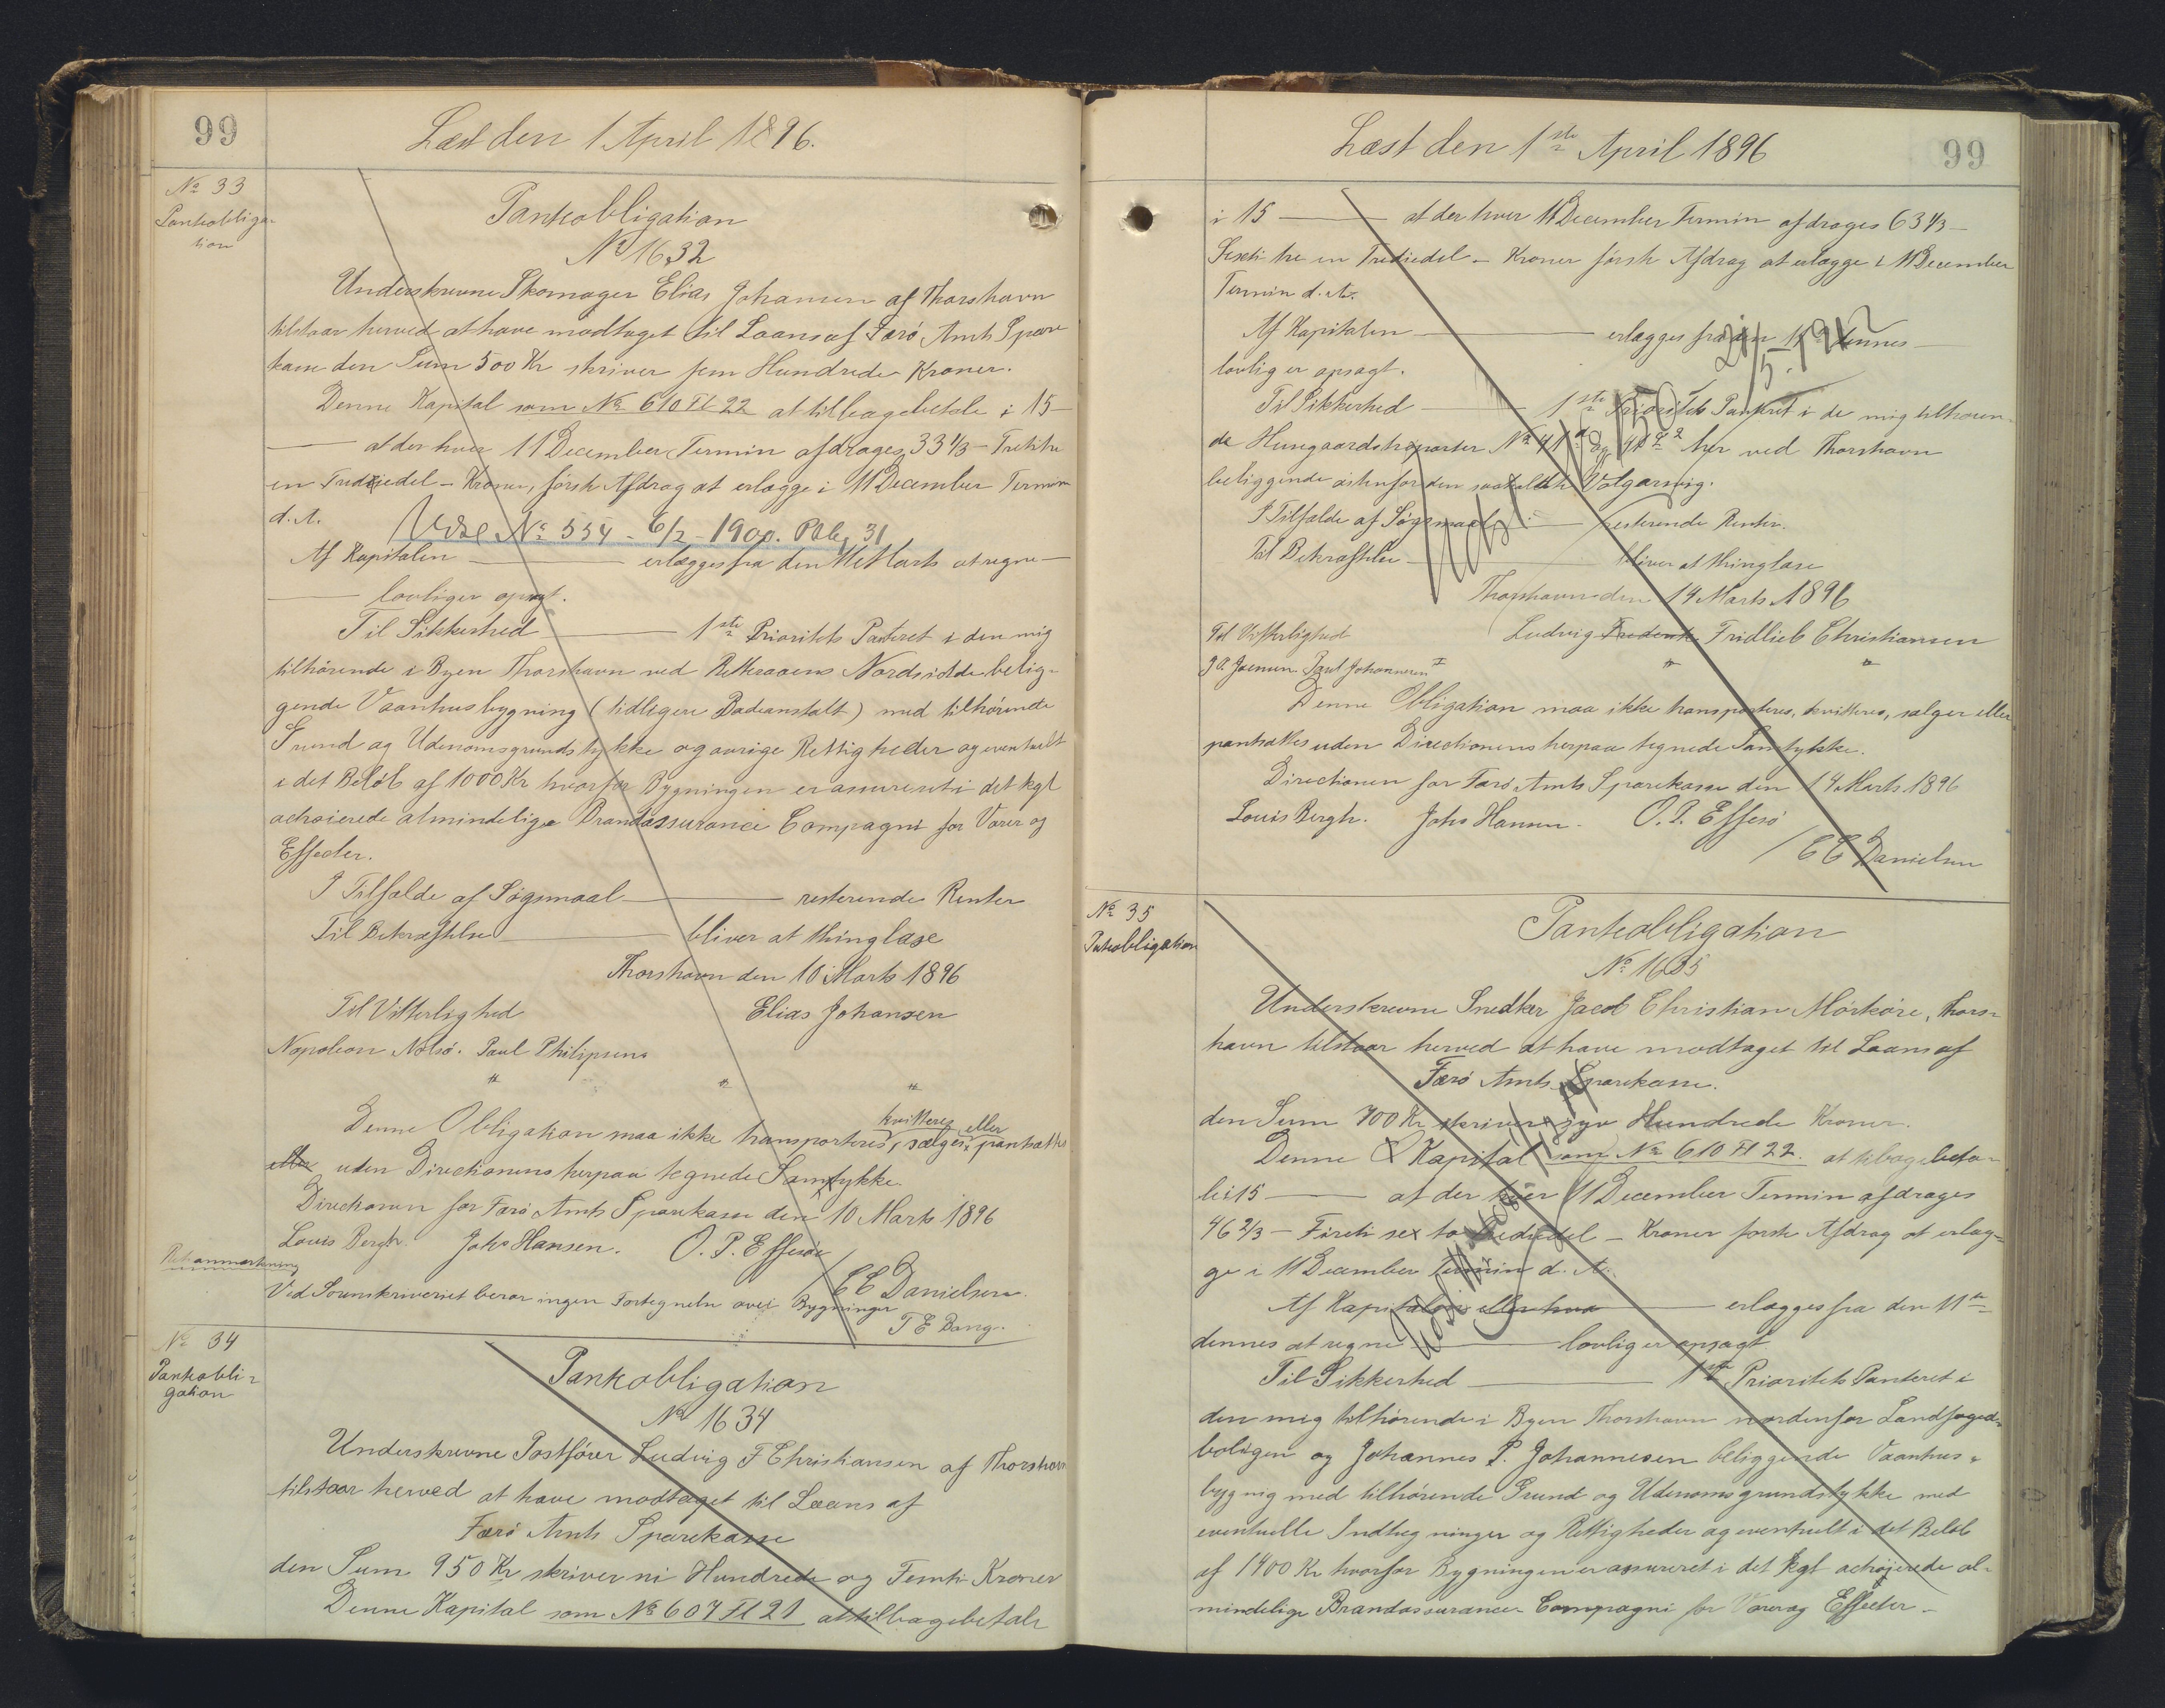 99
Læst den 1 April 1896.
No 33
Pantobliga-
tion
Pantobligation
No 1632
Underskrevne Skomager Elias Johansen af Thorshavn
tilstaar herved at have modtaget til Laans af Færø Amts Spare
kasse den Sum 500 Kr skriver fem Hundrede Kroner.
Denne Kapital som No 610 Fl 22 at tilbagebetale i 15 —
— at der hver 11 December Termin afdrages 33 1/3 — Tretitre
en Trediedel — Kroner, første Afdrag at erlægge i 11 December Termin
d. A.
Udsl No 554 - 6/2 - 1900. 31
Af Kapitalen — erlægges fra den 11te Marts at regne —
— lovliger opsagt.
Til Sikkerhed — 1ste Prioritets Panteret i den mig
tilhørende i Byen Thorshavn ved Nordside belig-
gende Vaanhusbygning (tidligere Badeanstalt) med tilhørende
Grund og Udenomsgrundstykke og øvrige Rettigheder og eventuelt
i det Beløb af 1000 Kr hvorfor Bygningen er assureret i det kgl
octroierede almindelige Brandassurance Compagni for Varer og
Effecter.
I Tilfælde af Søgsmaal — resterende Renter
Til Bekræftelse — bliver at thinglæse
Thorshavn den 10 Marts 1896
Til Vitterlighed Elias Johansen
Napoleon Nolsø. Paul Philipsen
" " "
kvitteres eller
Denne Obligation maa ikke transporteres, sælges, pantsættes
eller uden Directionens herpaa tegnede Samtykke.
Directionen for Færø Amts Sparekasse den 10 Marts 1896
Louis Bergh. Johs Hansen. O. P. Effersøe
/ C C Danielsen.
Retsanmærkning
Ved Sorenskriveriet beror ingen Fortegnelse over Bygninger
T E Bang.
No 34
Pantobli-
gation
Pantobligation
No 1634
Underskrevne Postfører Ludvig F Christiansen af Thorshavn
tilstaar herved at have modtaget til Laans af
Færø Amts Sparekasse
den Sum 950 Kr skriver ni Hundrede og Femti Kroner
Denne Kapital som No 607 Fl 21 at tilbagebetale
Læst den 1ste April 1896
99
i 15 — at der hver 11 December Termin afdrages 63 1/3 —
Sexti tre en Trediedel — Kroner første Afdrag at erlægge i 11 December
Termin d. A.
Af Kapitalen — erlægges fra den 11te dennes —
lovlig er opsagt.
Til Sikkerhed — 1ste Prioritets Panteret i de mig tilhøren-
de Huusgaardstroparter No 41 og her ved Thorshavn
beliggende østenfor den saakaldte
I Tilfælde af Søgsmaal — resterende Renter.
Til Bekræftelse — bliver at thinglæse
Thorshavn den 14 Marts 1896
Til Vitterlighed Ludvig Frederik Fridlieb Christiansen
J A. Joensen. Poul Johannesen " "
Denne Obligation maa ikke transporteres, kvitteres, sælges eller
pantsættes uden Directionens herpaa tegnede Samtykke.
Directionen for Færø Amts Sparekasse den 14 Marts 1896
Louis Bergh. Johs Hansen. O. P. Effersø
/ C C Danielsen
No 35
Pantobligation
Pantobligation
No 1635
Underskrevne Snedker Jacob Christian Mørkøre, Thors-
havn tilstaar herved at have modtaget til Laans af
Færø Amts Sparekasse.
den Sum 700 Kr skriver syv Hundrede Kroner.
Denne Kapital som No 610 Fl 22. at tilbagebeta-
le i 15 — at der hver 11 December Termin afdrages
46 2/3 — Fireti sex to Trediedel — Kroner første Afdrag at erlæg-
ge i 11 December Termin d. A.
Af Kapitalen eller hva — erlægges fra den 11te
dennes at regne — lovlig er opsagt
Til Sikkerhed — 1ste Prioritets Panteret i
den mig tilhørende i Byen Thorshavn nordenfor Landfoged-
boligen og Johannes P. Johannesen beliggende Vaanhus-
bygning med tilhørende Grund og Udenomsgrundstykke med
eventuelle Indhegninger og Rettigheder og eventuelt i det Beløb
af 1400 Kr hvorfor Bygningen er assureret i det kgl octrojerede al-
mindelige Brandassurance Compagni for Varer og Effecter —